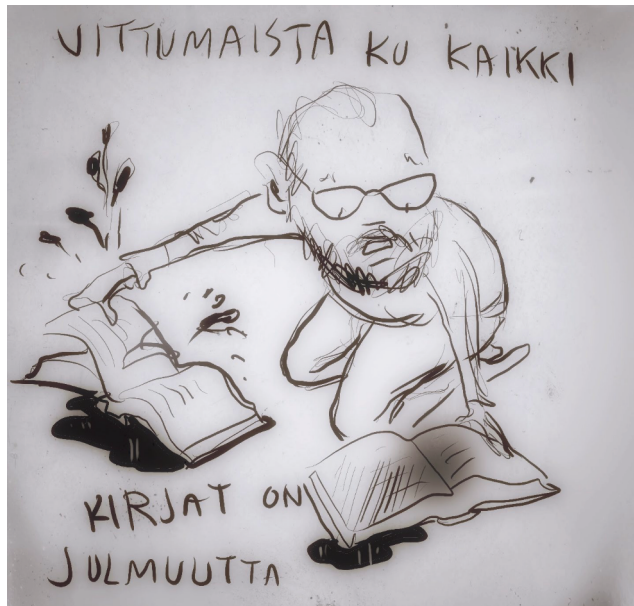 VITTUMAISTA KU KAIKKI
KIRJAT ON
JULMUUTTA